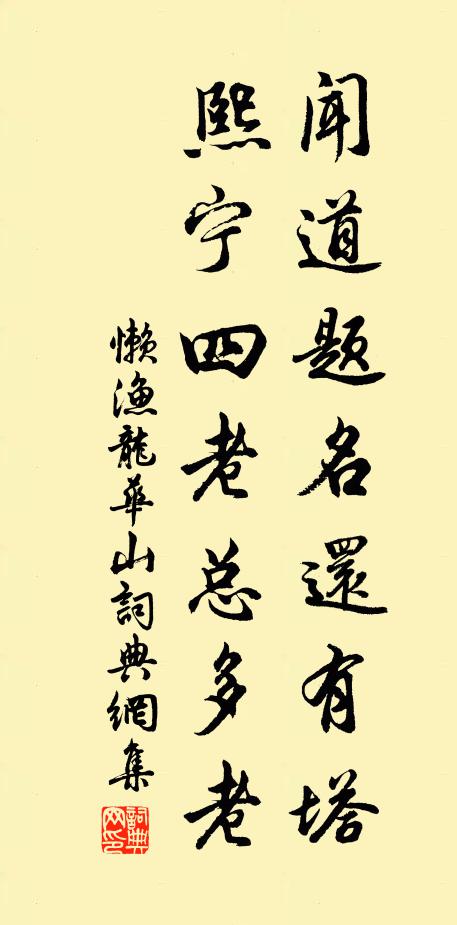 闻道题名還有塔
熙宁四老总多老
懒渔龍华山詞典網集
詞典网印